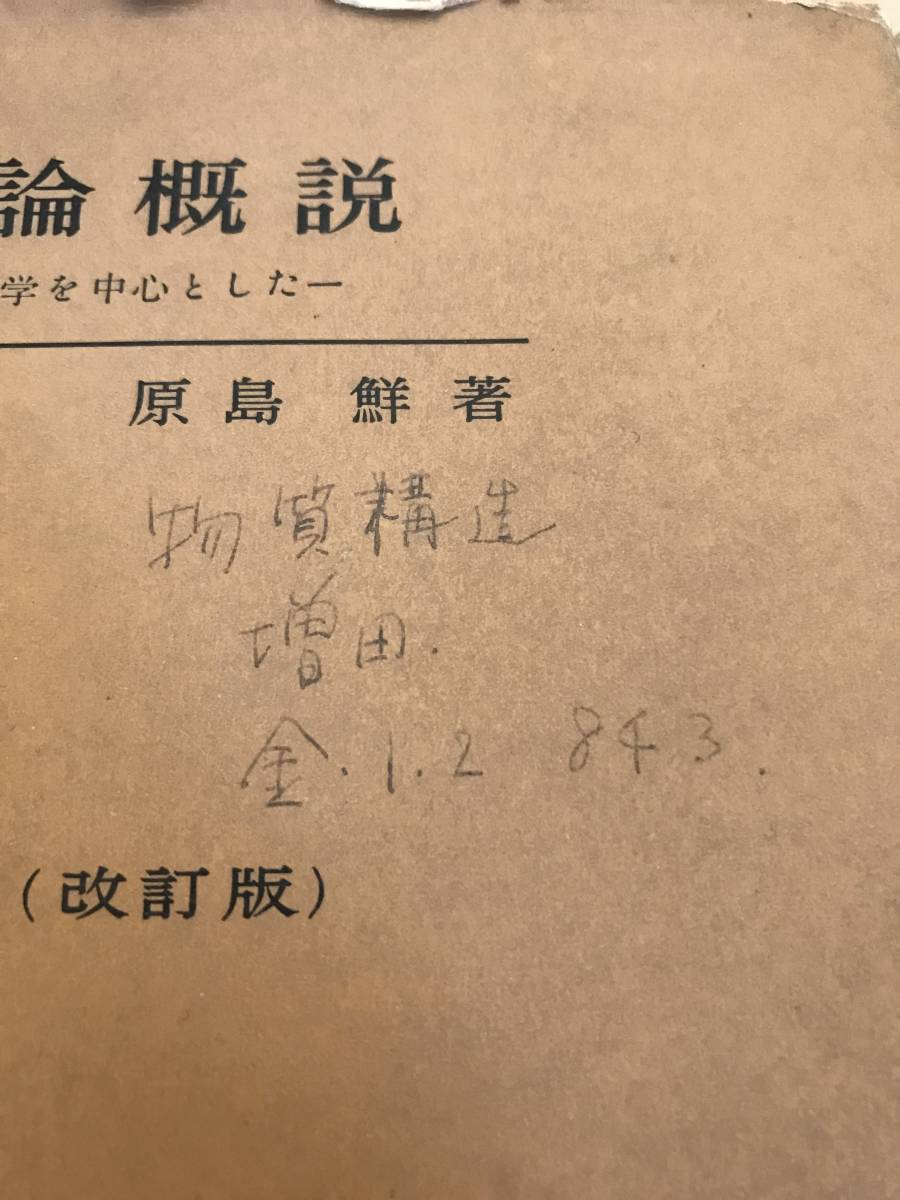 論概説
学を中心とした—
原島 鮮 著
物質構造
増田.
金.1.2 843.
(改訂版)